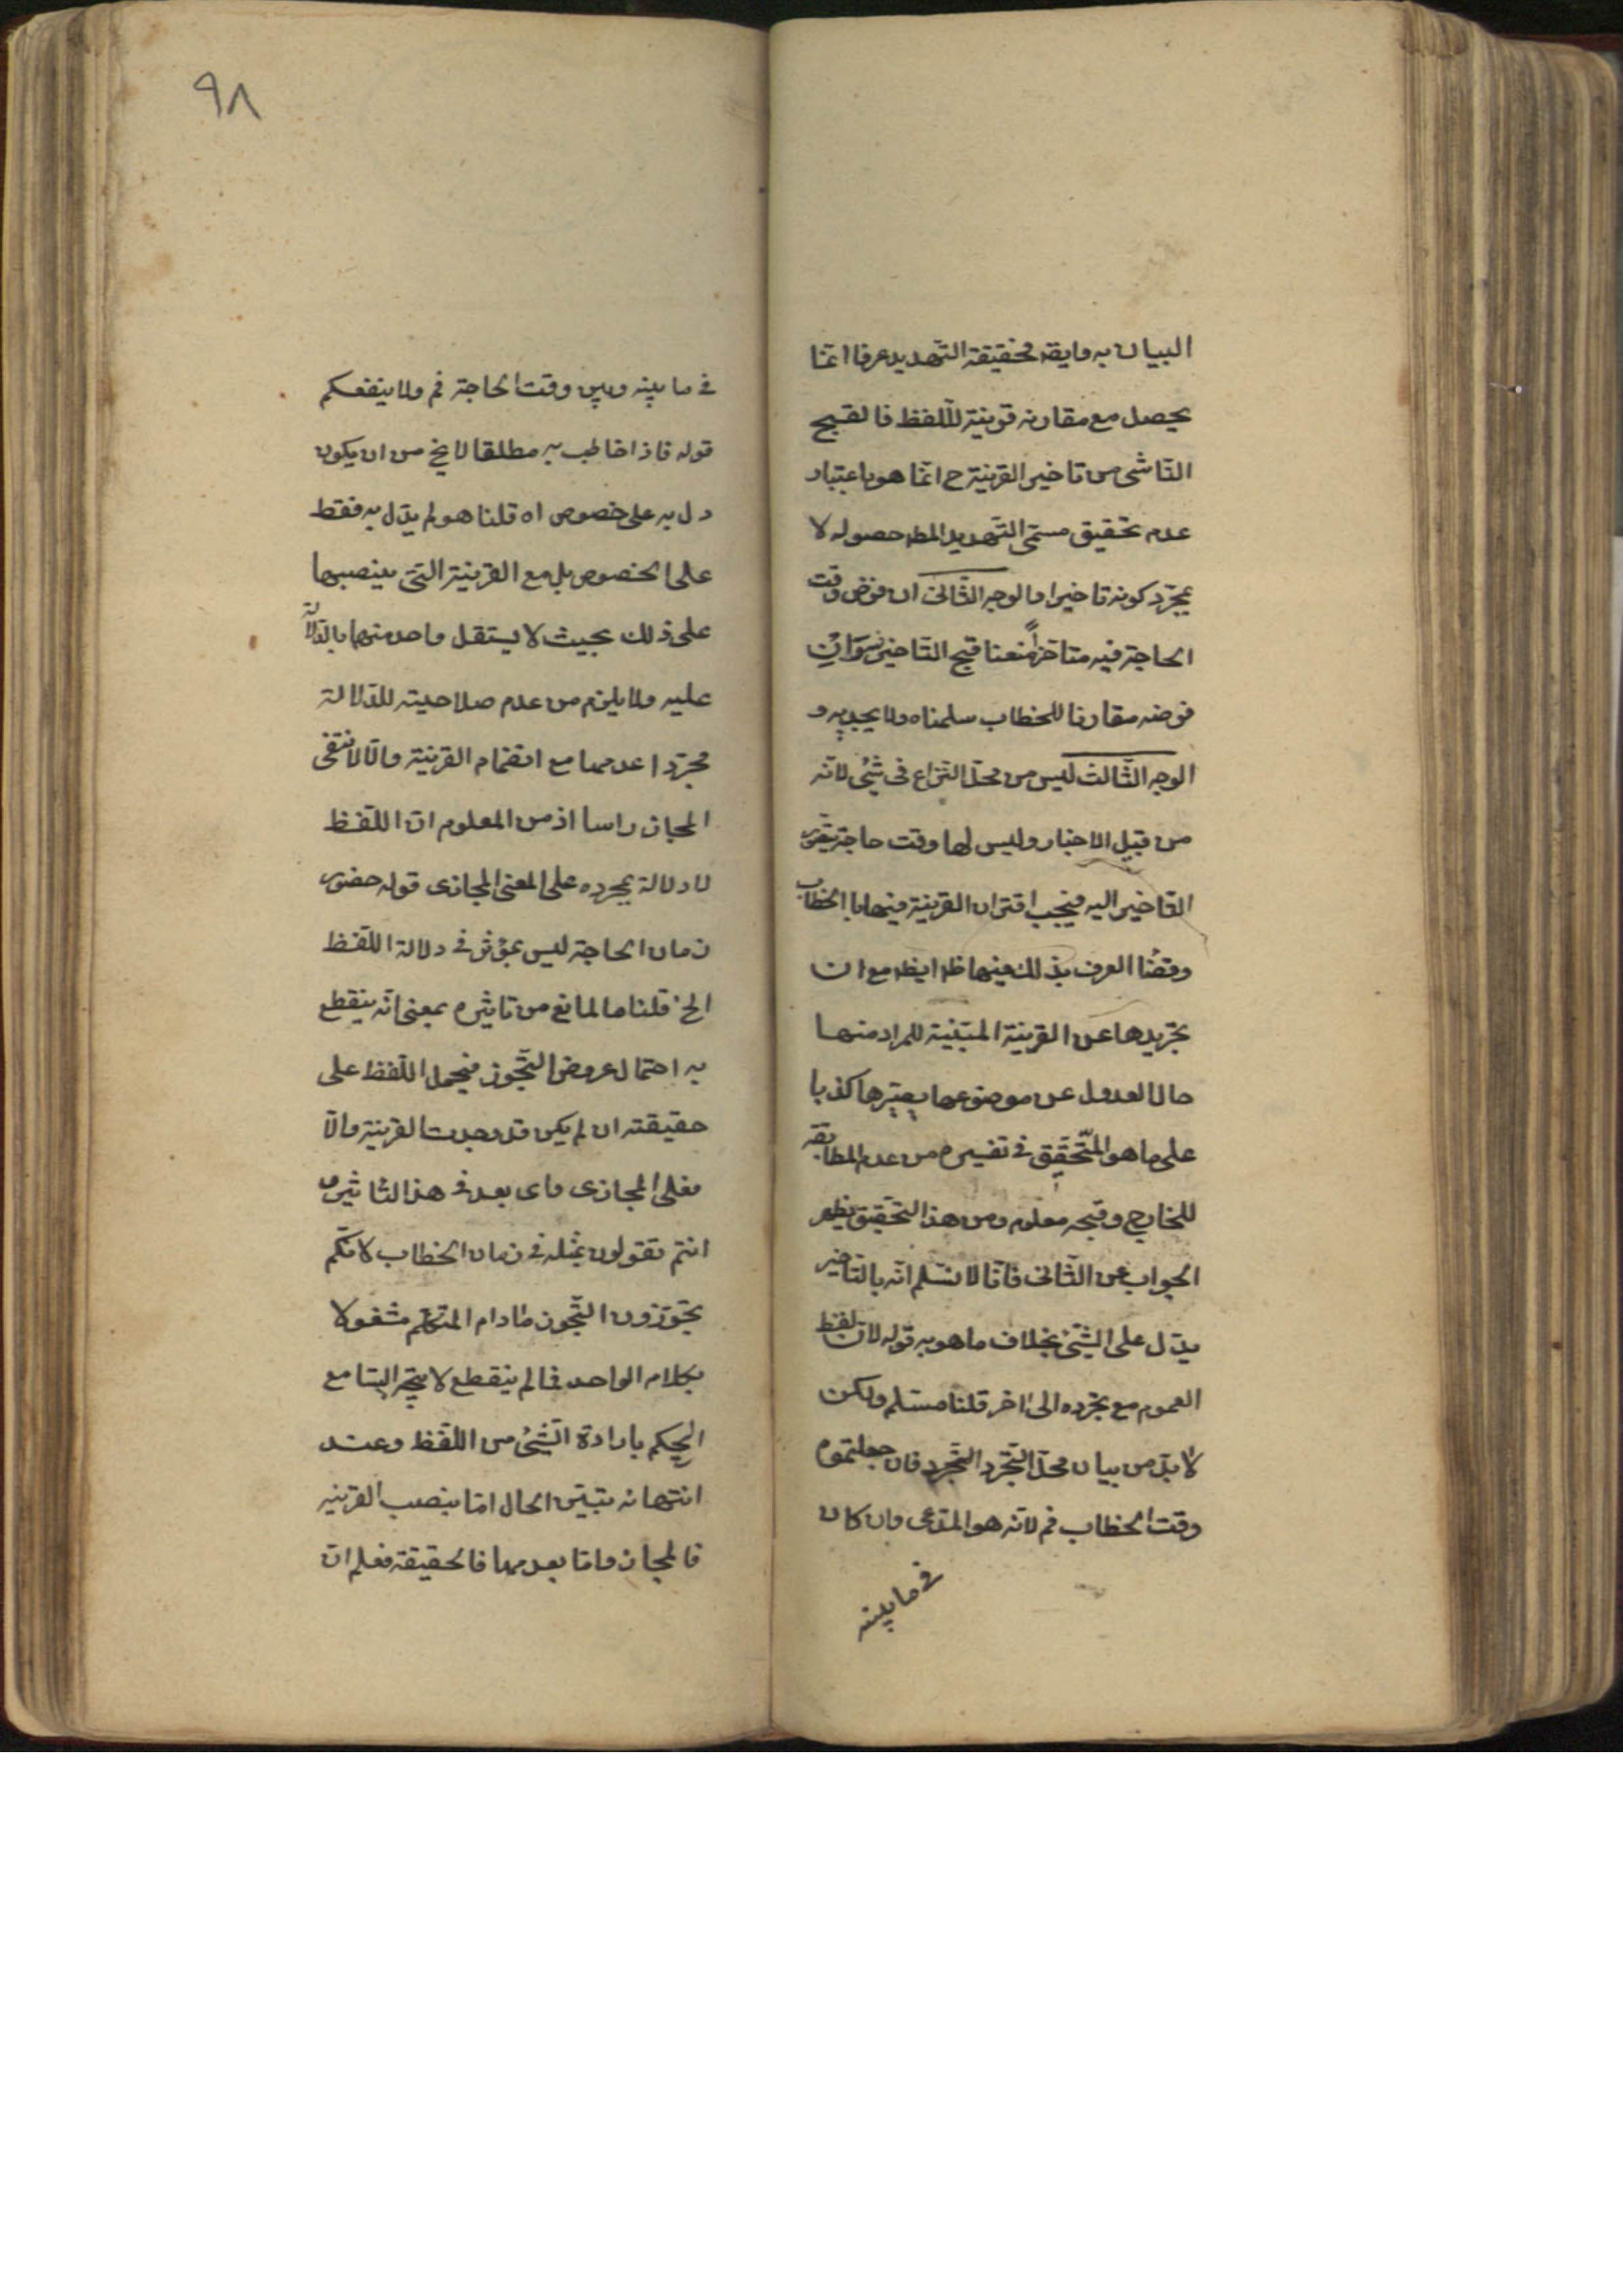 البيان به وايضه فحقيقة التهديد عرفا انما
يحصل مع مقارنه قرينة للفظ فالقبيح
الناشى من تاخير القرينة ح انما هو باعتبار
عدم تحقيق مسمى التهديد المط حصوله لا
بمجرد كونه تاخيرا والوجه الثانى ان فرض وقت
الحاجة فيه متاخرا منعنا قبح التاخير سواء ان
فرضه مقارنا للخطاب سلمناه ولا يجديه و
الوجه الثالث ليس من محل النزاع فى شئ لانه
من قبيل الاخبار وليس لها وقت حاجة يتصور
التاخير اليه فيجب اقتران القرينة فيها بالخطاب
وقضا العرف بذلك فيها ظ ايضا مع ان
تجريدها عن القرينة المبينية للمراد منها
حال العدول عن موضوعها يصيرها كذبا
على ما هو المتحقق فى تفسيره من عدم المطابقة
للخارج وقبحه معلوم ومن هذا التحقيق يظهر
الجواب عن الثانى فانا لا نسلم انه بالتاخير
يدل على الشئ بخلاف ما هو به قوله لان لفظ
العموم مع تجرده الى اخر قلنا مسلم ولكن
لا بد من بيان محل التجرد التجرد فان جعلتموه
وقت الخطاب فم لانه هو المدعى وان كان
فى ما بينه
٩٨
فى ما بينه وبين وقت الحاجة فم ولا ينفعكم
قوله فاذا خاطب به مطلقا لا يخ من ان يكون
دل به على خصوص اه قلنا هو لم يدل به فقط
على الخصوص بل مع القرينة التى ينصبها
على ذلك بحيث لا يستقل واحد منهما بالدلالة
عليه ولا يلزم من عدم صلاحيته للدلالة
مجردا عدمها مع انضمام القرينة والا لانتفى
المجاز راسا اذ من المعلوم ان اللفظ
لا دلالة بمجرده على المعنى المجازى قوله حضور
زمان الحاجة ليس بمؤثر فى دلالة اللفظ
الخ قلنا ما المانع من تاثيره بمعنى انه ينقطع
به احتمال عروض التجوز فيحمل اللفظ على
حقيقته ان لم يكن قد وجدت القرينة والا
فعلى المجازى واى بعد فى هذا التاثير و
انتم تقولون بمثله فى زمان الخطاب لانكم
تجوزون التجوز مادام المتكلم مشغولا
بكلام الواحد فما لم ينقطع لا يتجه السامع
الحكم بارادة الشئ من اللفظ وعند
انتهائه يتبين الحال اما بنصب القرينه
فالمجاز واما بعدمها فالحقيقة فعلم ان